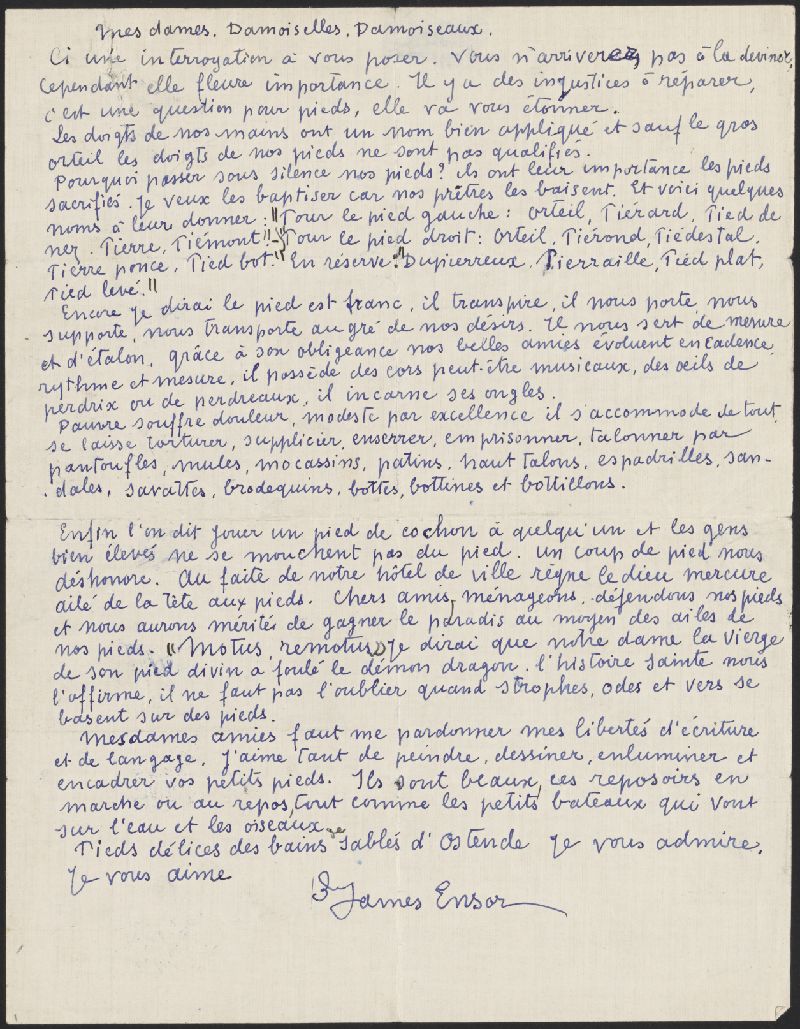 Mesdames. Damoiselles. Damoiseaux.
Ci une interrogation à vous poser. Vous n'arriverez pas à la deviner,
cependant elle fleure importance. Il y a des injustices à réparer,
c'est une question pour pieds, elle va vous étonner.
Les doigts de nos mains ont un nom bien appliqué et sauf le gros
orteil les doigts de nos pieds ne sont pas qualifiés.
Pourquoi passer sous silence nos pieds? ils ont leur importance les pieds
sacrifiés. Je veux les baptiser car nos prêtres les baisent. Et voici quelques
noms à leur donner : "Pour le pied gauche : Orteil, Piérard, Pied de
nez. Pierre, Piémont" - "Pour le pied droit : Orteil. Piérond, Piédestal.
Pierre ponce. Pied bot." En réserve : "Dupierreux. Pierraille, Pied plat,
Pied levé."
Encore je dirai le pied est franc, il transpire, il nous porte, nous
supporte, nous transporte au gré de nos désirs. Il nous sert de mesure
et d'étalon, grâce à son obligeance nos belles amies évoluent en cadence,
rythme et mesure, il possède des cors peut-être musicaux, des œils de
perdrix ou de perdreaux, il incarne ses ongles.
Pauvre souffre douleur, modeste par excellence il s'accommode de tout,
se laisse torturer, supplicier, enserrer, emprisonner, talonner par
pantoufles, mules, mocassins, patins, haut talons, espadrilles, san-
dales, savattes, brodequins, bottes, bottines et bottillons.
Enfin l'on dit jouer un pied de cochon à quelqu'un et les gens
bien élevés ne se mouchent pas du pied. Un coup de pied nous
déshonore. Au faite de notre hôtel de ville règne le dieu mercure
ailé de la tête aux pieds. Chers amis, ménageons. défendons nos pieds
et nous aurons mérités de gagner le paradis au moyen des ailes de
nos pieds. "Motus, remotus" je dirai que notre dame la Vierge
de son pied divin a foulé le démon dragon. l'histoire sainte nous
l'affirme, il ne faut pas l'oublier quand strophes, odes et vers se
basent sur des pieds.
Mesdames amies faut me pardonner mes libertés d'écriture
et de langage. J'aime tant de peindre, dessiner, enluminer et
encadrer vos petits pieds. Ils sont beaux, ces reposoirs en
marche ou au repos, tout comme les petits bateaux qui vont
sur l'eau et les oiseaux.
Pieds délices des bains sablés d'Ostende je vous admire.
Je vous aime
James Ensor